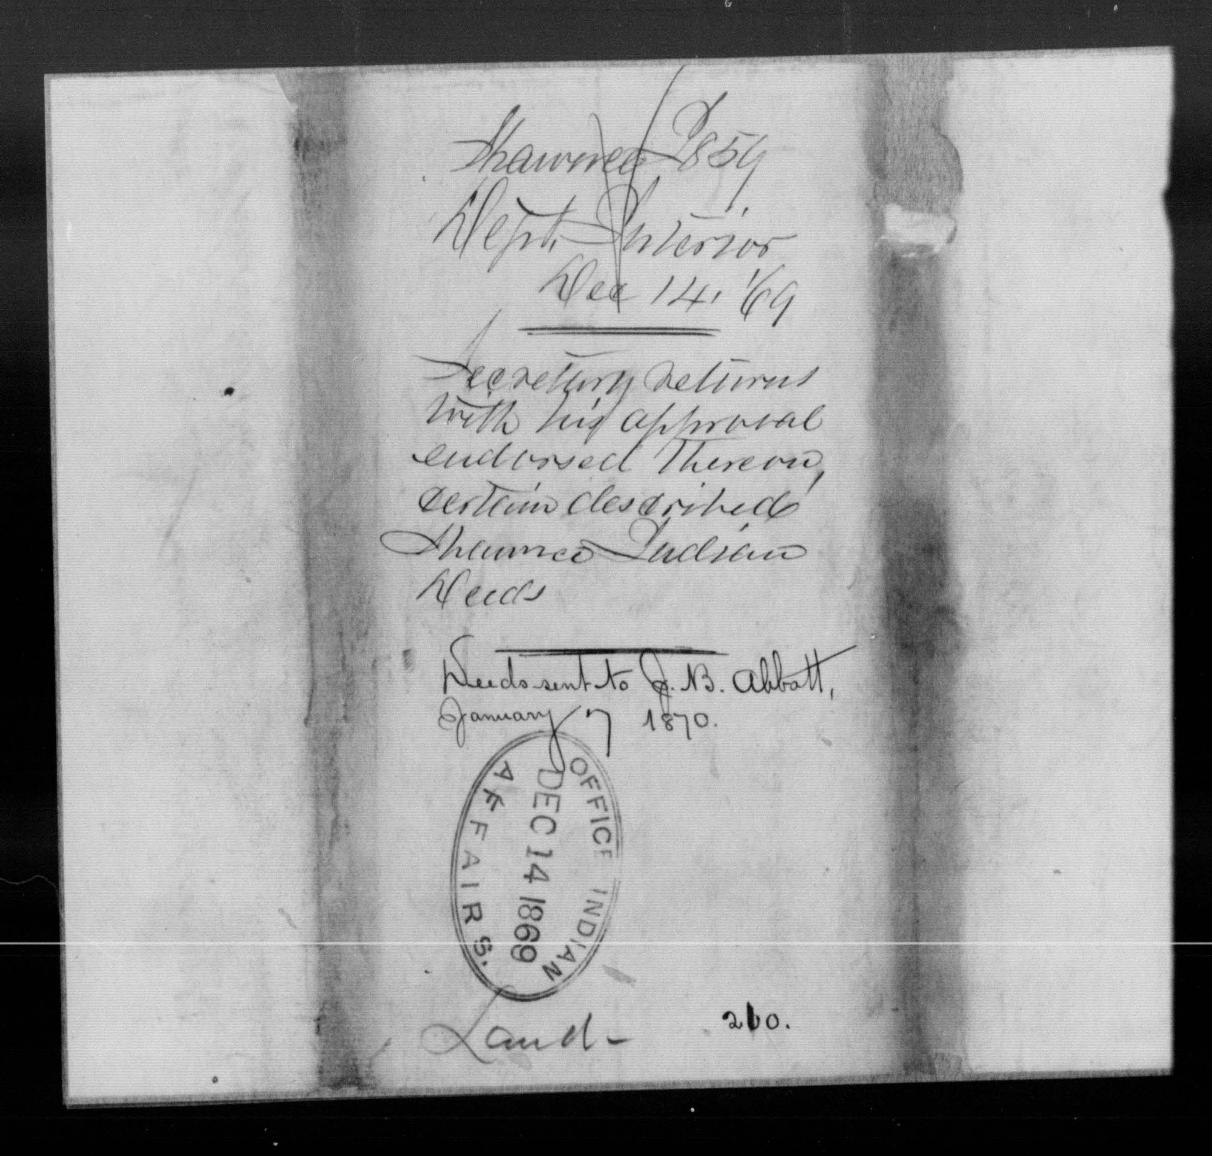 Shawnee I 859
Dept. Interior
Dec 14, '69
Secretary returns
with his approval
endorsed thereon,
certain described
Shawnee Indian
Deeds
Deeds sent to J. B. Abbott,
January 7 1870.
OFFICE INDIAN AFFAIRS.
DEC 14 1869
Land-
260.